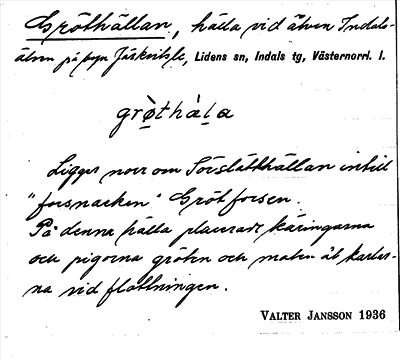 Gröthällan, hälla vid älven Indals-
älven på byn Järkvitsle, Lidens sn, Indals tg, Västernorrl. l.
grò̤thàḷa
Ligger norr om Sörslåtthällan intill
"forsnacken" Grötforsen.
På denna hälla placerade käringarna
och pigorna gröten och maten åt karlar-
na vid flottningen.
VALTER JANSSON 1936